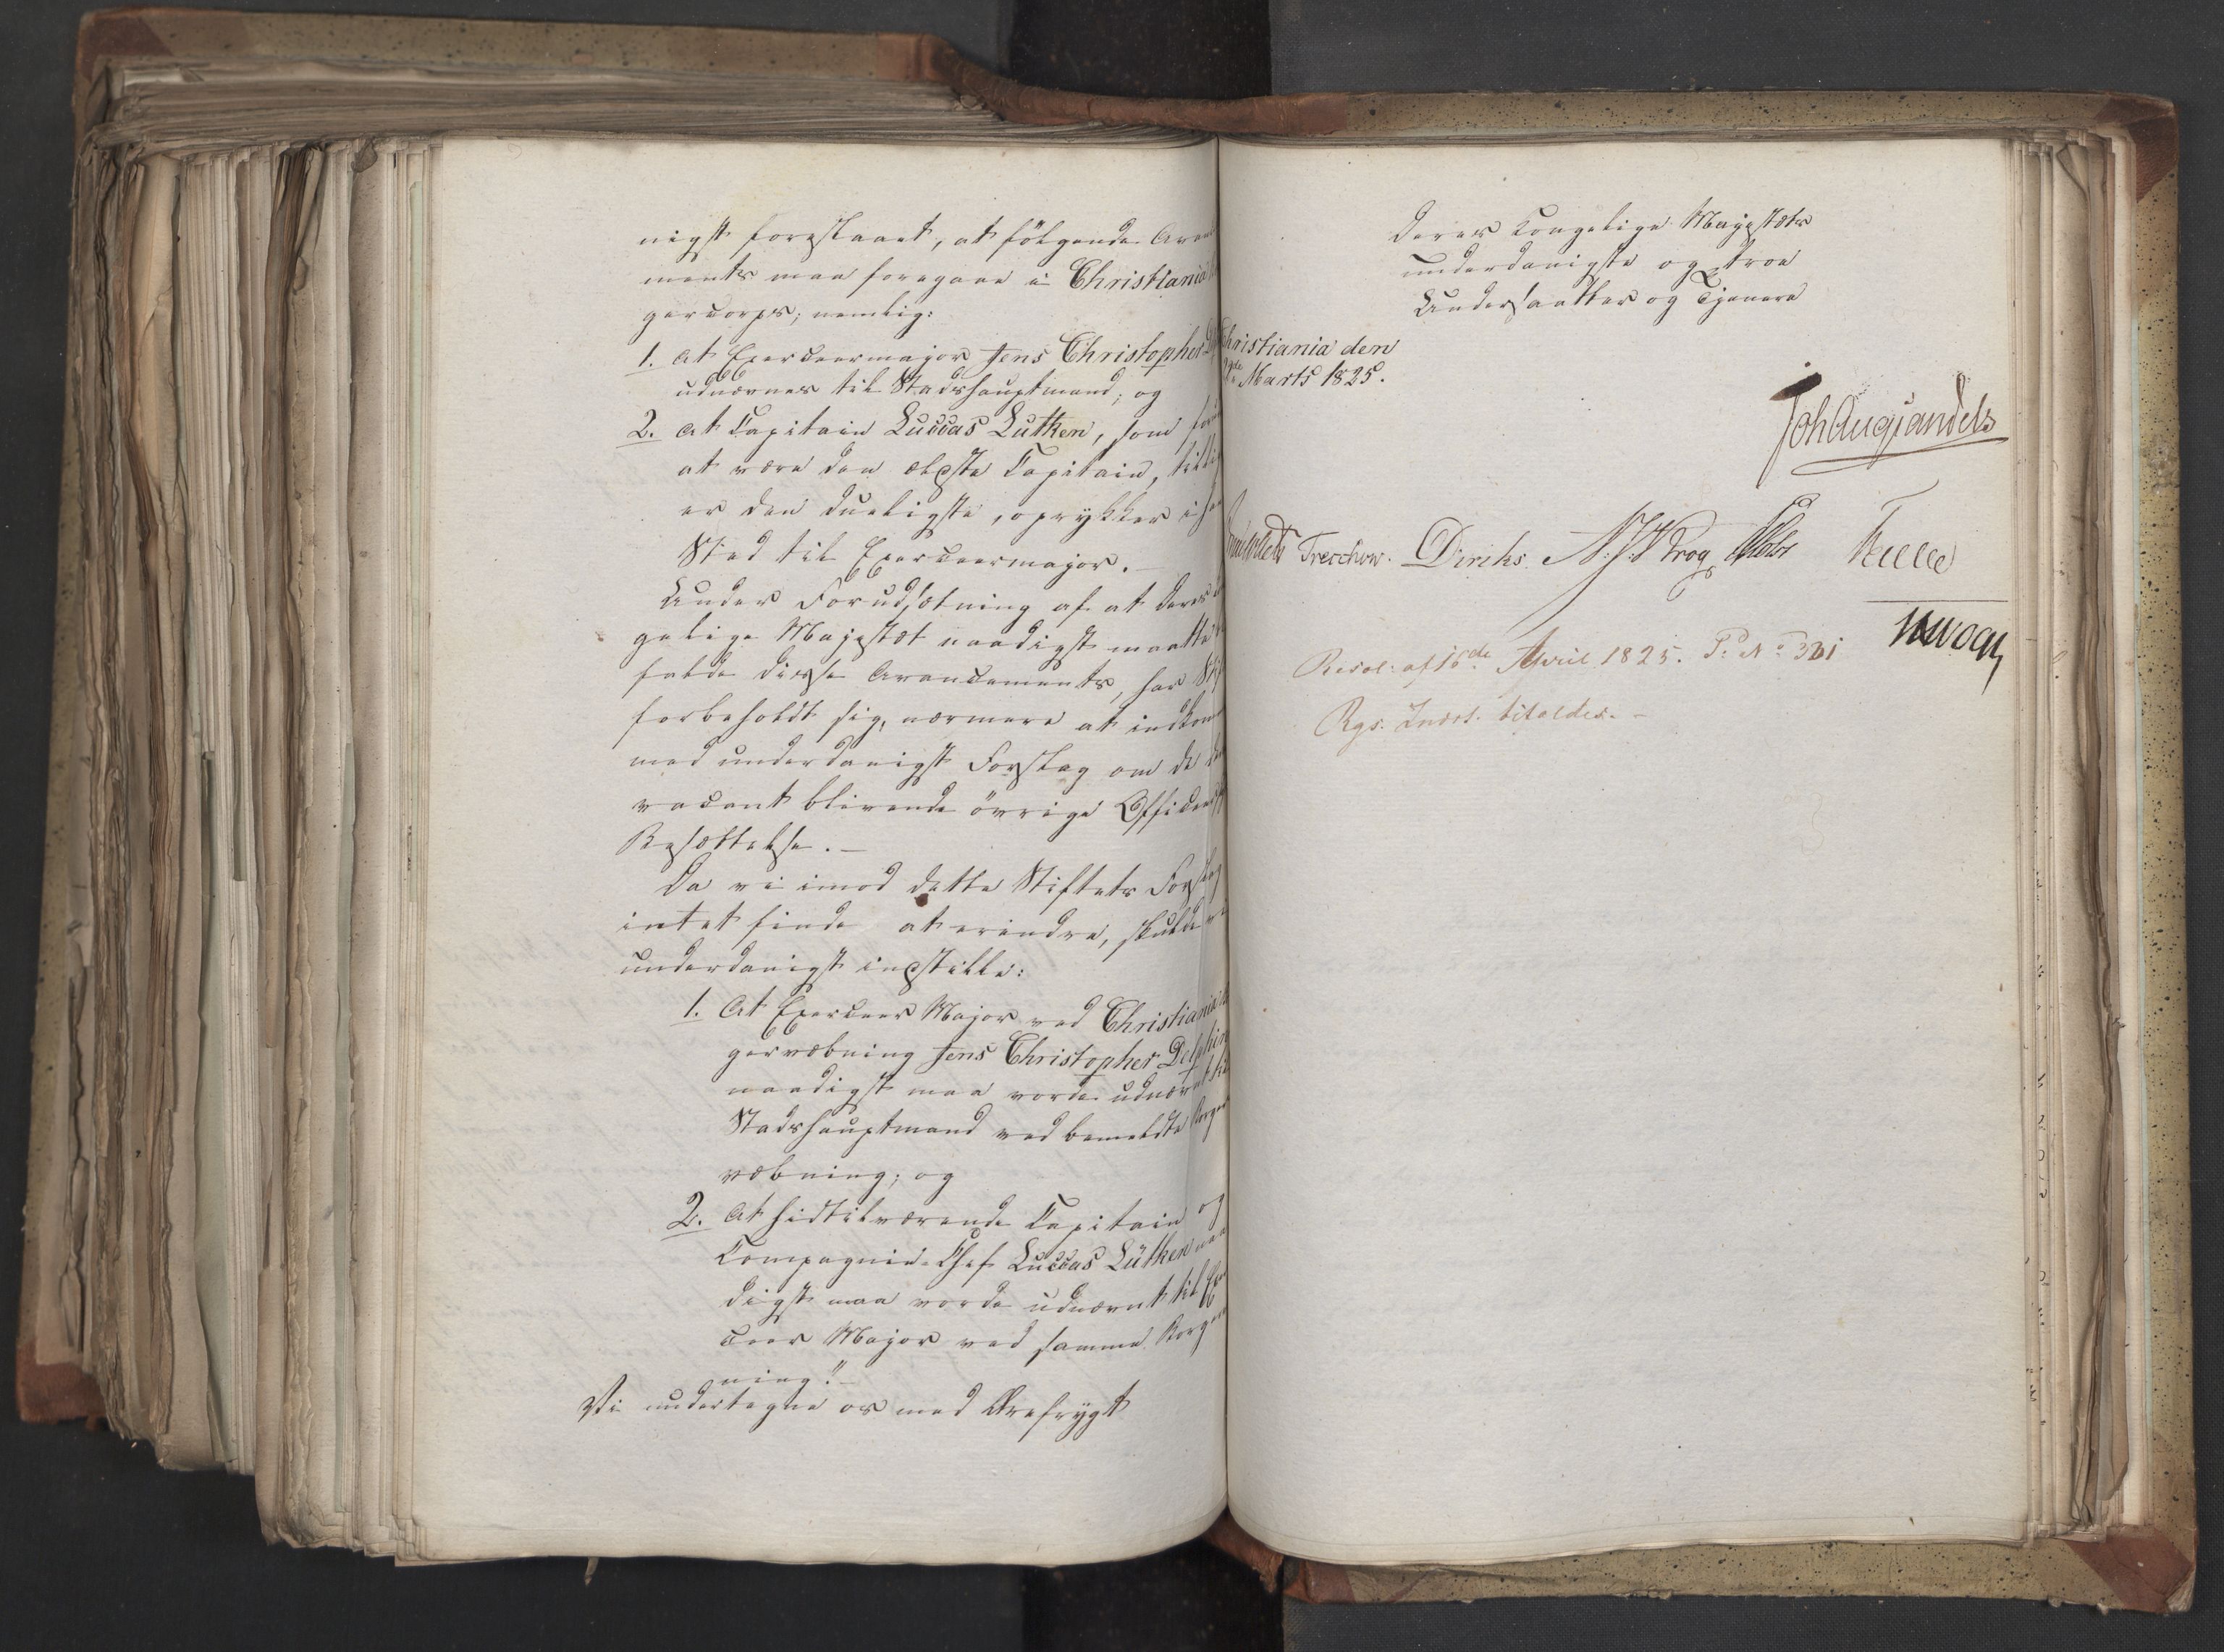 nigst foreslaaet, at følgende Avan
ments maa foregaae i Christiania
gercorps; nemlig:
1. at Exerceermajor Jens Christopher
udnævnes til Stadshauptmand; og
2. at Capitain Luccas Lutken, som
at være den ældste Capitain,
er den dueligste, oprykker i
Sted til Exerceermajor.
Under Forudsætning af at Deres
gelige Majestæt naadigst maatte
falde disse Avancements, har
forbeholdt sig, nærmere at indkom
med underdanigst Forslag om de
vacant blivende øvrige Officeers
Besættelse.
Da vi imod dette Stiftets Forslag
intet finde at erindre, skulde vi
underdanigst indstille:
1. At Exerceer Major ved Christiania
gervæbning Jens Christopher Delphin
naadigst maa vorde udnævnt til
Stadshauptmand ved bemeldte Borger
væbning; og
2. At hidtilværende Capitain og
Compagnie-Chef Luccas Lütken naa
digst maa vorde udnævnt til Exer
ceer Major ved samme Borger
ning."
Vi undertegne os med Ærefrygt
Deres Kongelige Majestæts
underdanigste og troe
Undersaatter og Tjenere
Christiania den
Marts 1825.
Joh Aug Sandels
Treschow. Diriks. N. J. Krog
Resol: af 16de April 1825. P: No 321
Rgs. Indst. bifaldes.